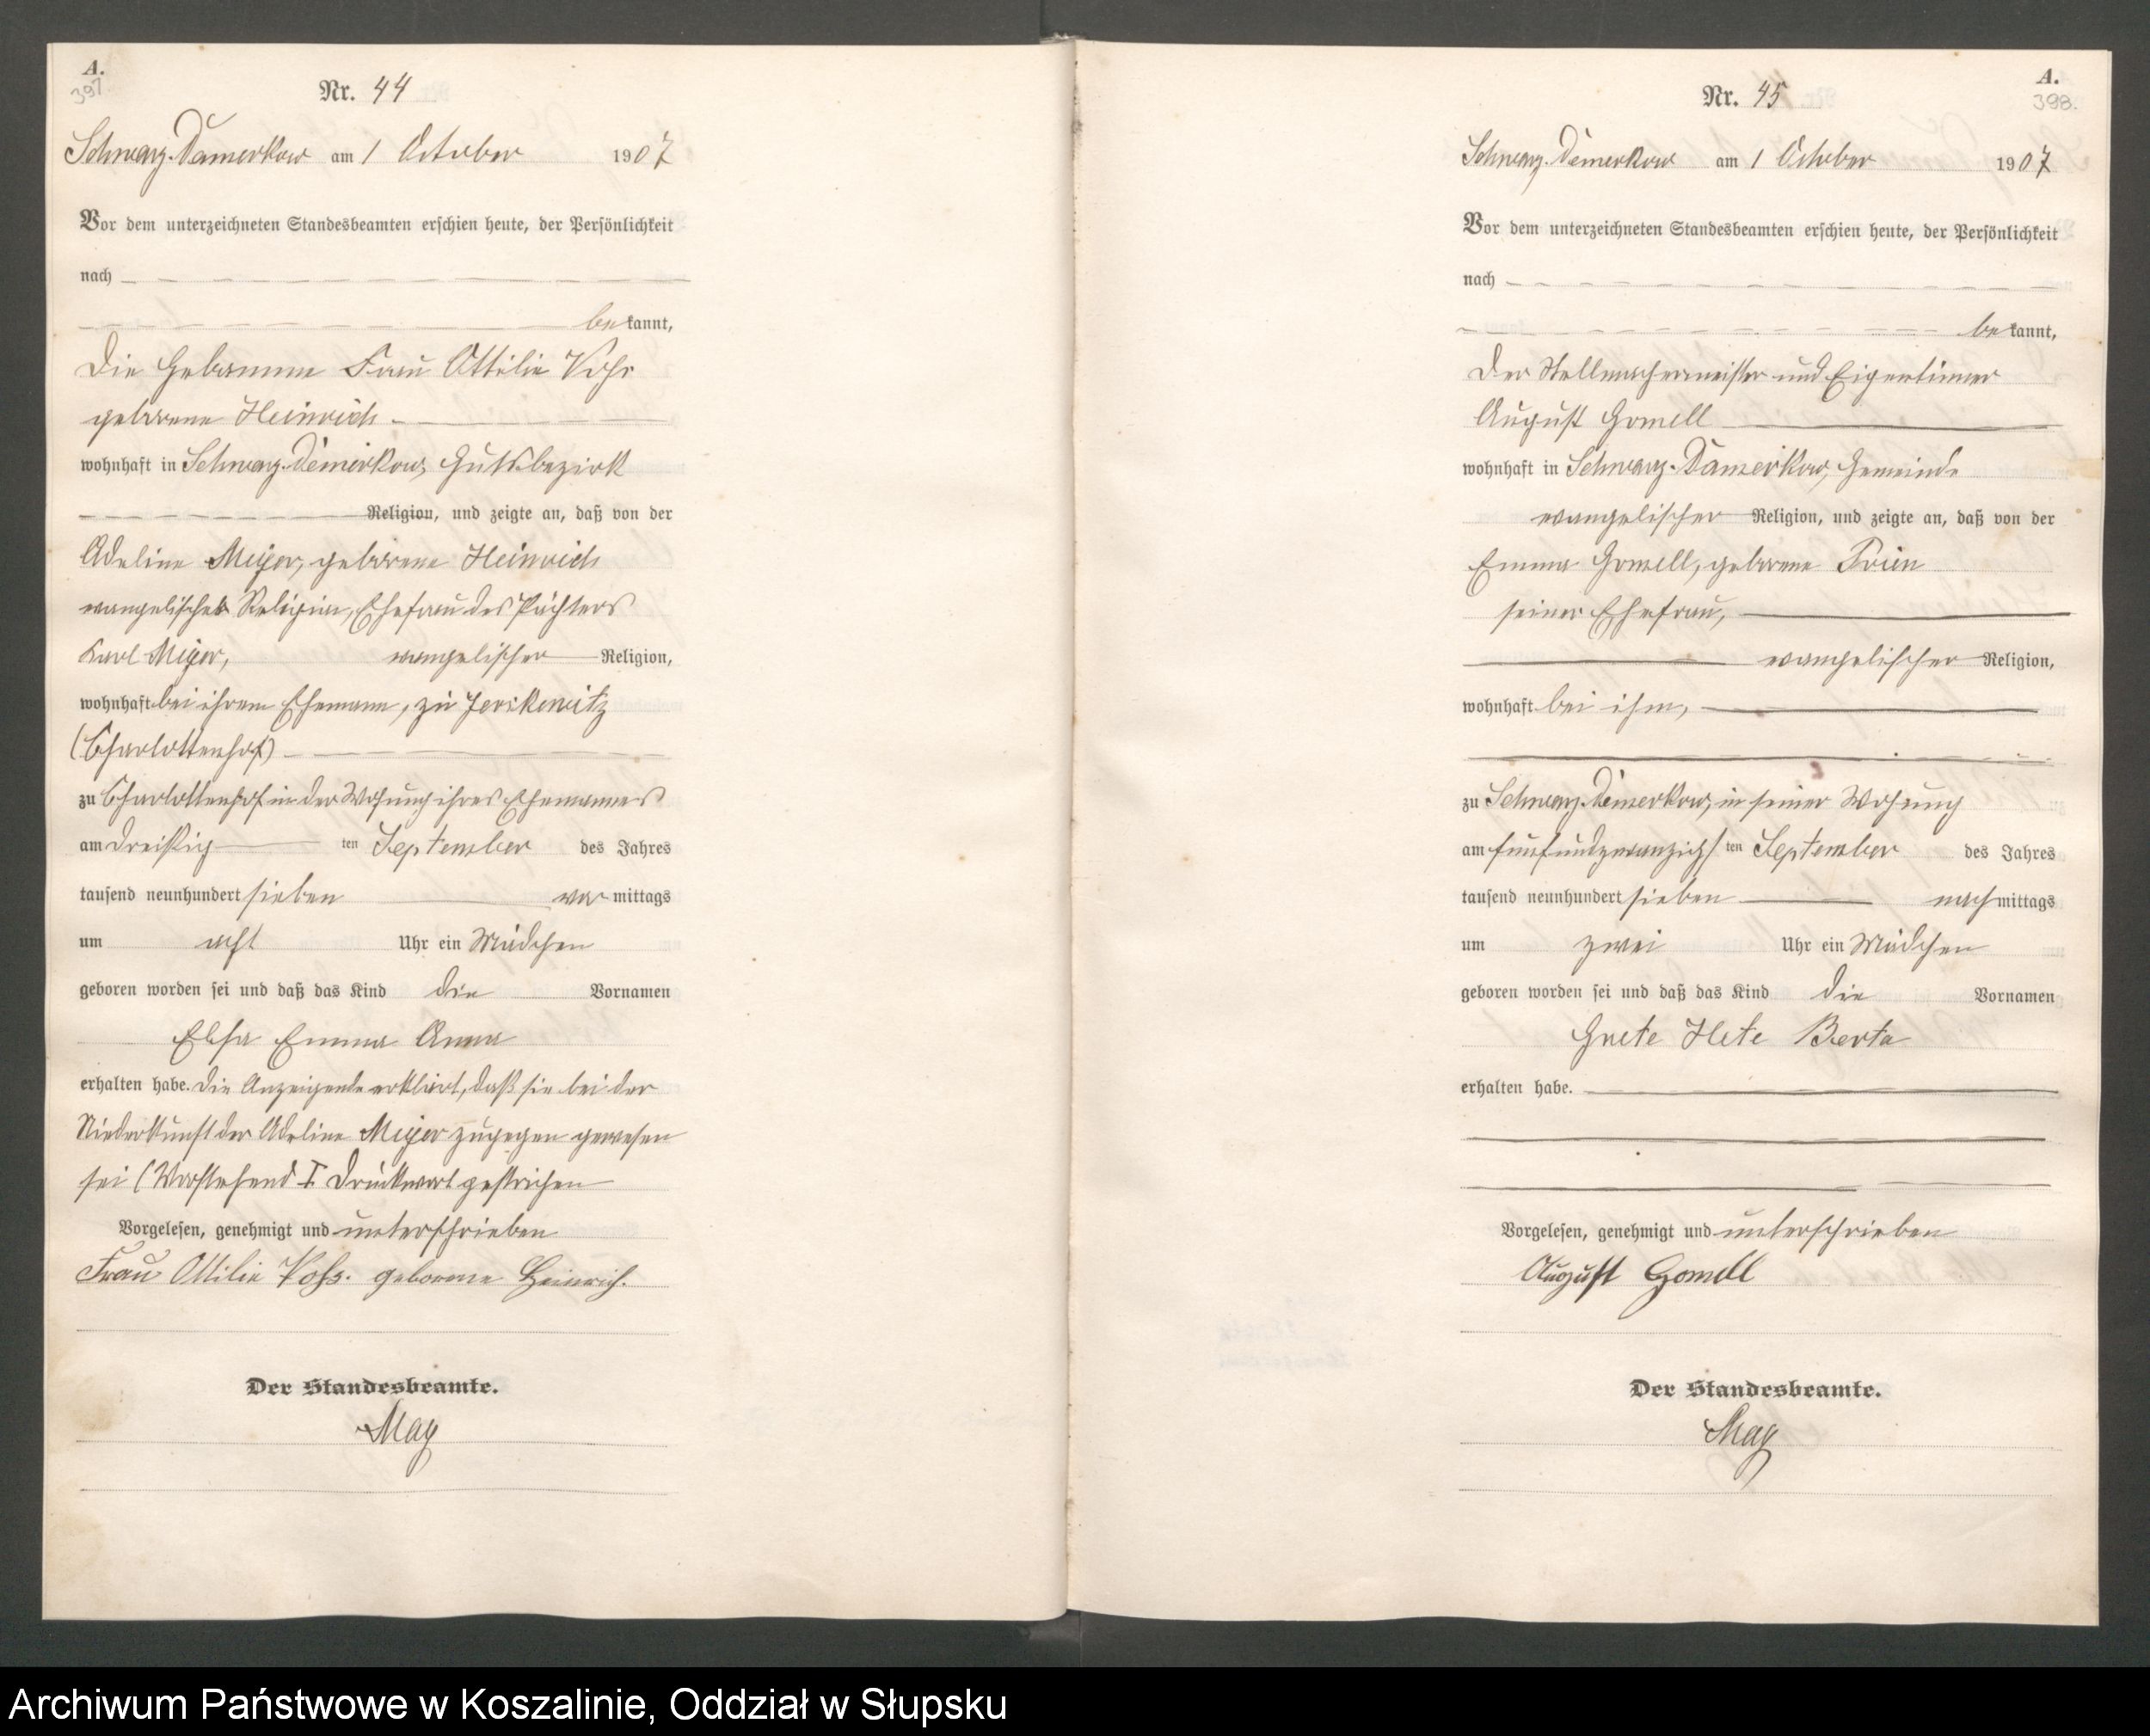 A.
397
Nr. 44
Schwarz-Damerkow am 1 October 1907
Vor dem unterzeichneten Standesbeamten erschien heute, der Persönlichkeit
nach
bekannt,
Die Hebamme Frau Ottilie Voß
geborene Heinrich
wohnhaft in Schwarz-Damerkow, Gutsbezirk
Religion, und zeigte an, daß von der
Adeline Meyer, geborene Heinrich
evangelischer Religion, Ehefrau des Pächters
Karl Meyer, evangelischer Religion,
wohnhaft bei ihrem Ehemann, zu Jerskewitz
(Charlottenhof)
zu Charlottenhof in der Wohnung ihres Ehemannes
am dreißig ten September des Jahres
tausend neunhundert sieben vor mittags
um acht Uhr ein Mädchen
geboren worden sei und daß das Kind die Vornamen
Elsa Emma Anna
erhalten habe. Die Anzeigende erklärt, daß sie bei der
Niederkunft der Adeline Meyer zugegen gewesen
sei (Vorstehend I Druckwort gestrichen
Vorgelesen, genehmigt und unterschrieben
Frau Ottilie Voß. geborene Heinrich.
Der Standesbeamte.
May
A.
398.
Nr. 45
Schwarz-Damerkow am 1 October 1907
Vor dem unterzeichneten Standesbeamten erschien heute, der Persönlichkeit
nach
bekannt,
Der Stellmachermeister und Eigentümer
August Gomell
wohnhaft in Schwarz-Damerkow, Gemeinde
evangelischer Religion, und zeigte an, daß von der
Emma Gomell, geborene Prien
seiner Ehefrau,
evangelischer Religion,
wohnhaft bei ihm,
zu Schwarz-Damerkow, in seiner Wohnung
am fünfundzwanzigsten September des Jahres
tausend neunhundert sieben nachmittags
um zwei Uhr ein Mädchen
geboren worden sei und daß das Kind die Vornamen
Grete Hete Berta
erhalten habe.
Vorgelesen, genehmigt und unterschrieben
August Gomell
Der Standesbeamte.
May
Archiwum Państwowe w Koszalinie, Oddział w Słupsku